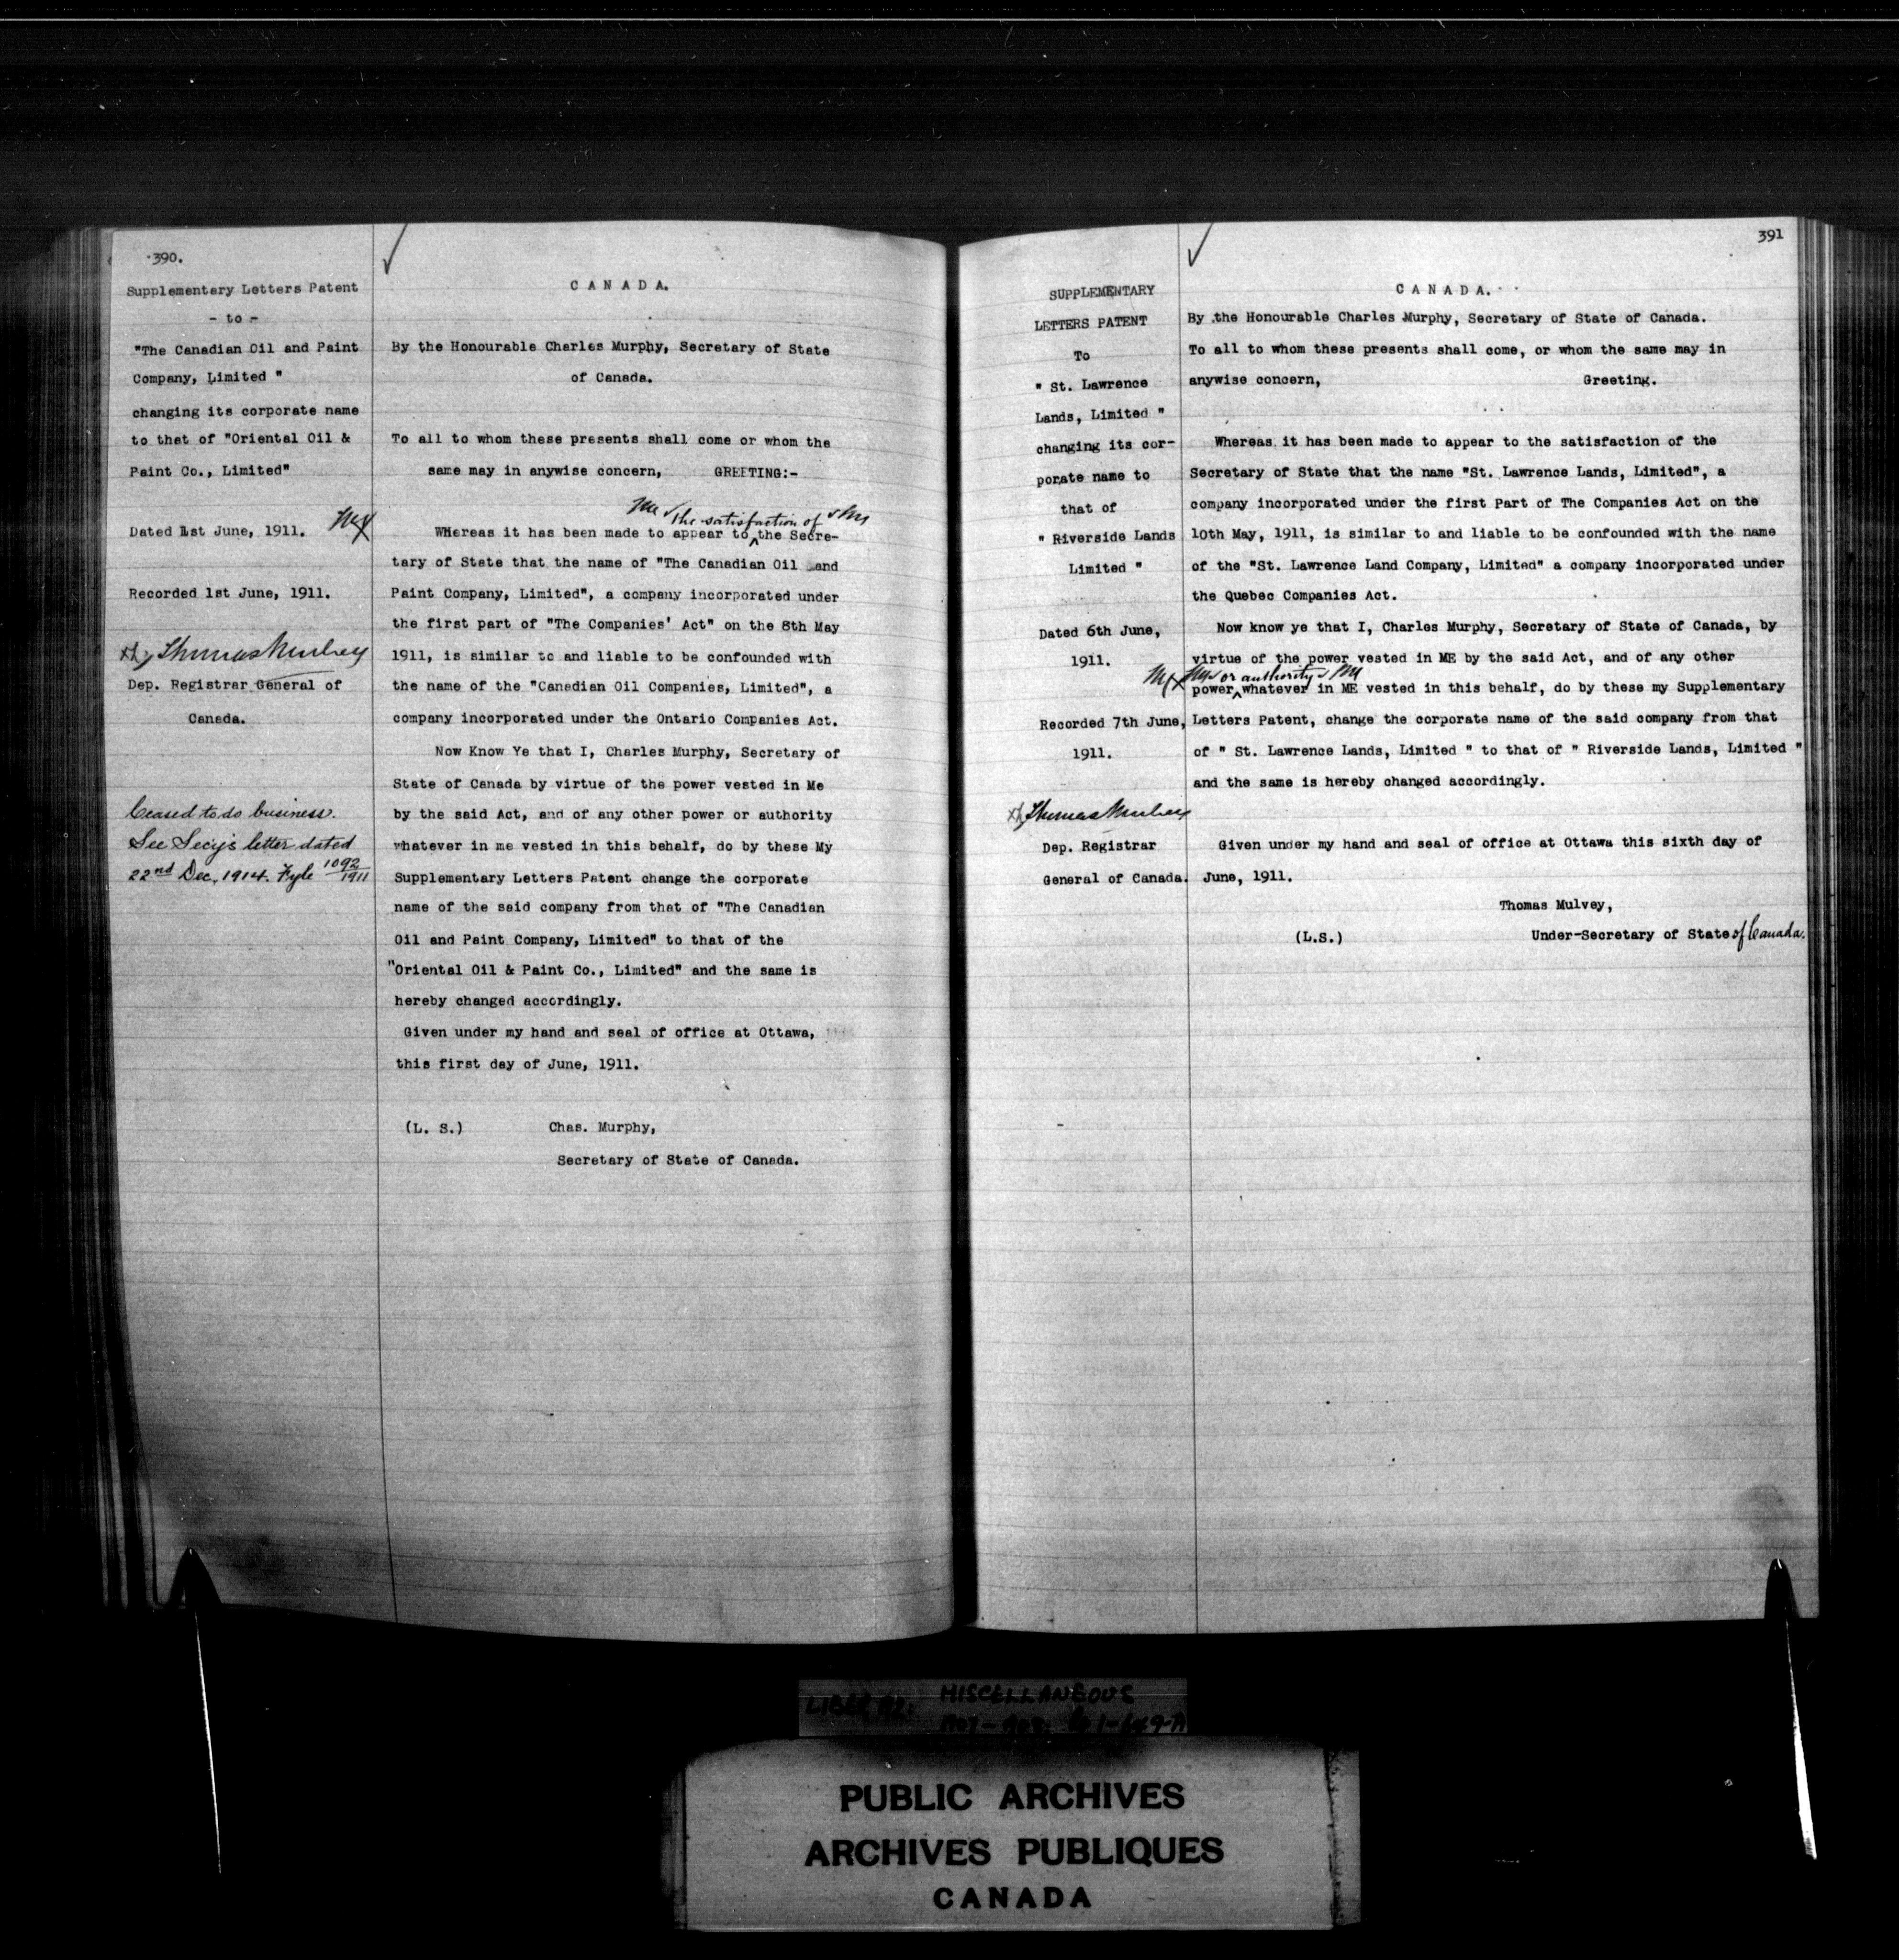 390.
Supplementary Letters Patent
- to -
"The Canadian Oil and Paint
Company, Limited "
changing its corporate name
to that of "Oriental Oil &
Paint Co., Limited"
Dated 1st June, 1911.
Recorded 1st June, 1911.
Thomas Mulvey
Dep. Registrar General of
Canada.
Ceased to do business.
See Secy's letter dated
22nd Dec, 1914. Fyle 1092/1911
C A N A D A.
By the Honourable Charles Murphy, Secretary of State
of Canada.
To all to whom these presents shall come or whom the
same may in anywise concern, GREETING:-
the satisfaction of
Whereas it has been made to appear to ^ the Secre-
tary of State that the name of "The Canadian Oil and
Paint Company, Limited", a company incorporated under
the first part of "The Companies' Act" on the 8th May
1911, is similar to and liable to be confounded with
the name of the "Canadian Oil Companies, Limited", a
company incorporated under the Ontario Companies Act.
Now Know Ye that I, Charles Murphy, Secretary of
State of Canada by virtue of the power vested in Me
by the said Act, and of any other power or authority
whatever in me vested in this behalf, do by these My
Supplementary Letters Patent change the corporate
name of the said company from that of "The Canadian
Oil and Paint Company, Limited" to that of the
"Oriental Oil & Paint Co., Limited" and the same is
hereby changed accordingly.
Given under my hand and seal of office at Ottawa,
this first day of June, 1911.
(L. S.) Chas. Murphy,
Secretary of State of Canada.
391
SUPPLEMENTARY
LETTERS PATENT
To
" St. Lawrence
Lands, Limited "
changing its cor-
porate name to
that of
" Riverside Lands
Limited "
Dated 6th June,
1911.
Recorded 7th June,
1911.
Thomas Mulvey
Dep. Registrar
General of Canada.
C A N A D A.
By the Honourable Charles Murphy, Secretary of State of Canada.
To all to whom these presents shall come, or whom the same may in
anywise concern, Greeting.
Whereas it has been made to appear to the satisfaction of the
Secretary of State that the name "St. Lawrence Lands, Limited", a
company incorporated under the first Part of The Companies Act on the
10th May, 1911, is similar to and liable to be confounded with the name
of the "St. Lawrence Land Company, Limited" a company incorporated under
the Quebec Companies Act.
Now know ye that I, Charles Murphy, Secretary of State of Canada, by
virtue of the power vested in ME by the said Act, and of any other
or authority
power ^ whatever in ME vested in this behalf, do by these my Supplementary
Letters Patent, change the corporate name of the said company from that
of " St. Lawrence Lands, Limited " to that of " Riverside Lands, Limited "
and the same is hereby changed accordingly.
Given under my hand and seal of office at Ottawa this sixth day of
June, 1911.
Thomas Mulvey,
(L.S.) Under-Secretary of State of Canada.
MISCELLANEOUS
PUBLIC ARCHIVES
ARCHIVES PUBLIQUES
CANADA